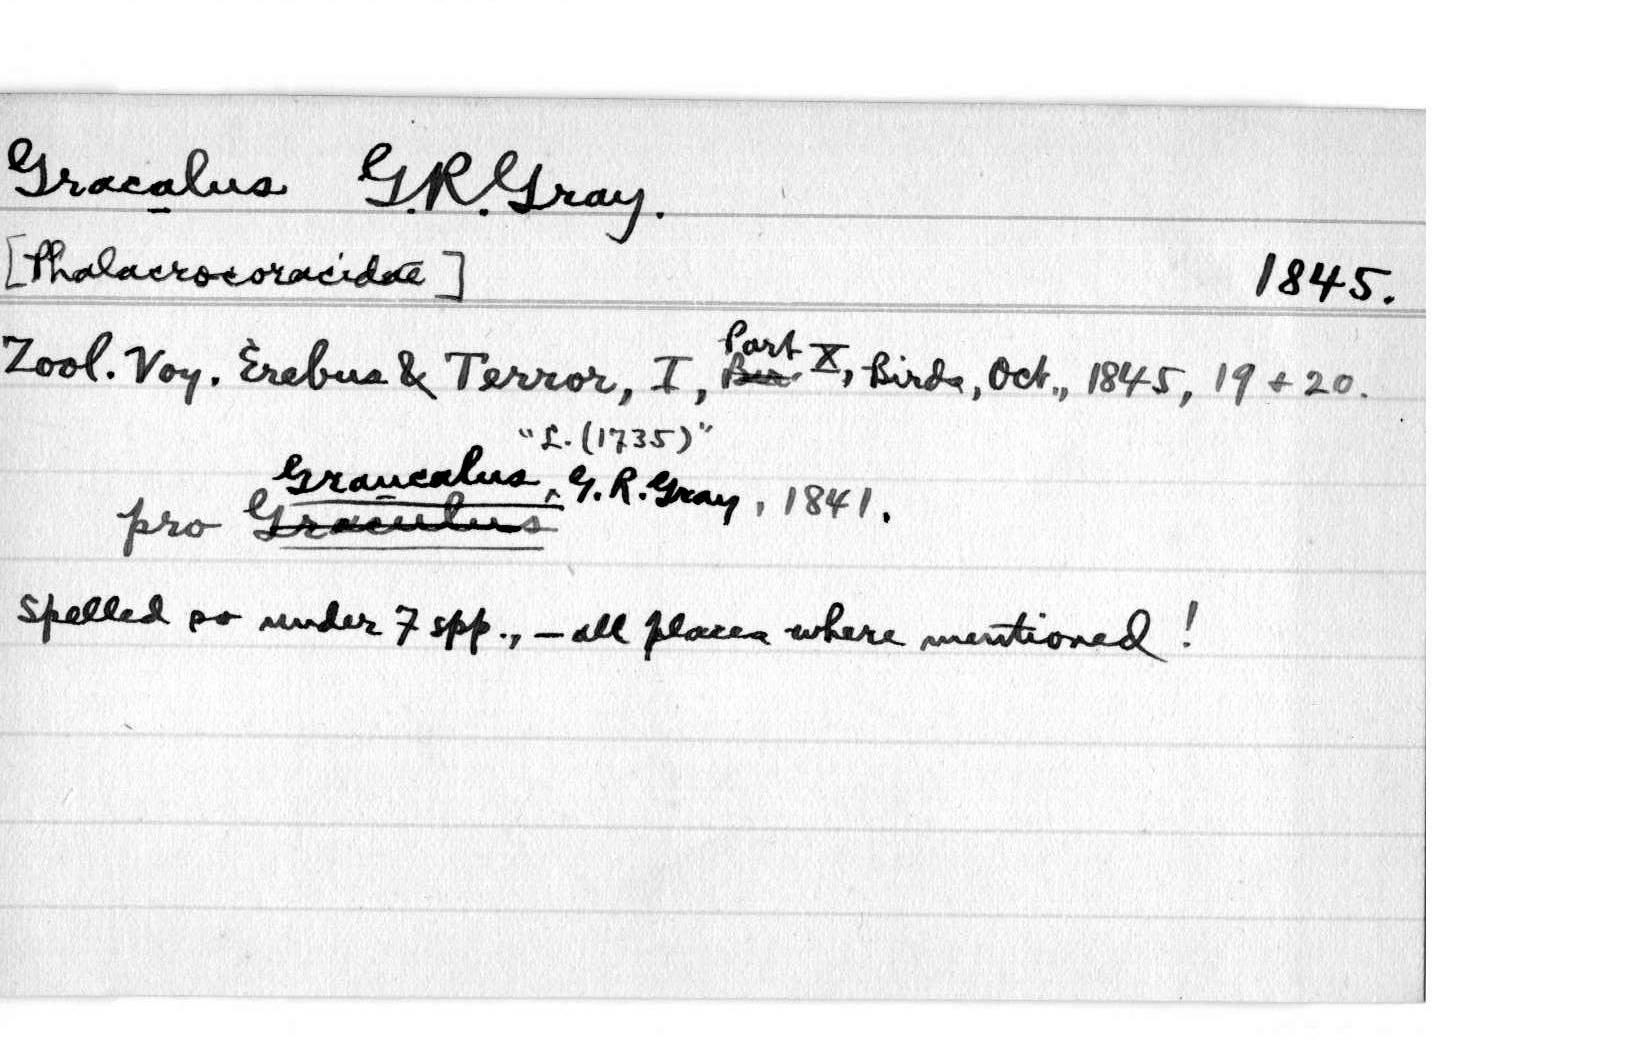 Gracalus G.R.Gray.
[Phalacrocoracidae] 1845.
Zool. Voy. Erebus & Terror, I, Part X, Birds, Oct., 1845, 19 + 20.
"L. (1735)"
Graucalus, G.R.Gray, 1841.
pro Graculus
Spelled so under 7 spp., – all places where mentioned!